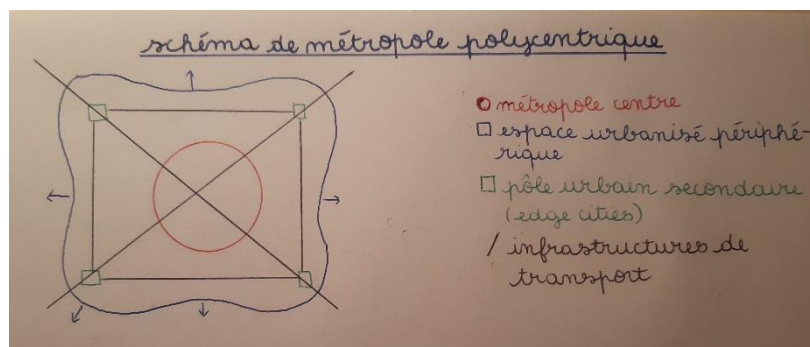 schéma de métropole polycentrique
métropole centre
espace urbanisé périphé-
rique
pôle urbain secondaire
(edge cities)
infrastructures de
transport